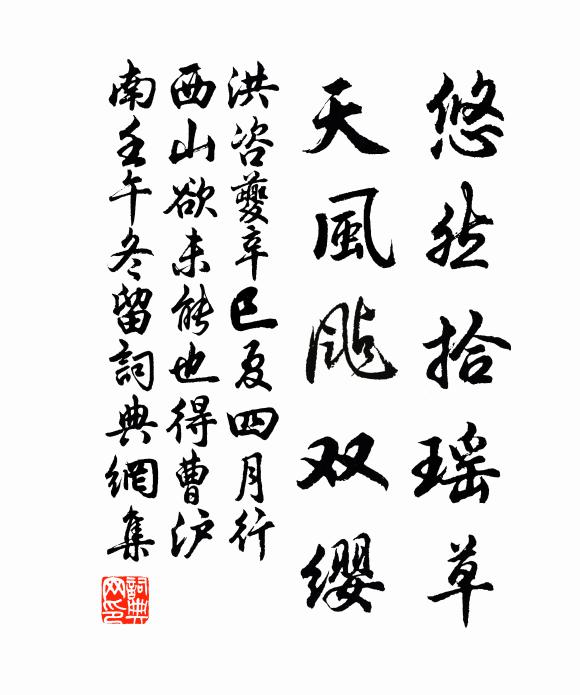 悠然拾瑶草
天風颭双缨
洪咨夔辛巳夏四月行
西山欲未能也得曹泸
南壬午冬留詞典網集
詞典网印